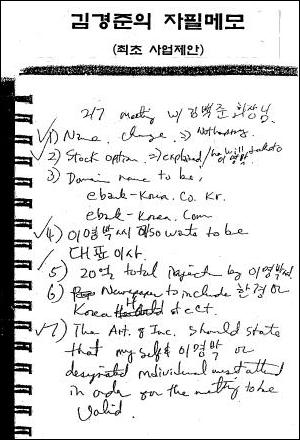 김경준의 자필메모
(최초 사업제안)
2/7 meeting w/ 김백준 회장님.
1) Name change ⇒ Nothing.
2) Stock option ⇒ explored / 이영박
3) Domain name to be;
ebank-Korea.Co.Kr.
ebank-Korea.Com
4) 이명박씨 also wants to be
대표이사.
5) 20억 total by 이명박씨
6) Newspaper to include 한경 or
Korea
7) The Art. of Inc. should state
that myself & 이명박 or
designated individual must attend
in order for the meeting to be
valid.